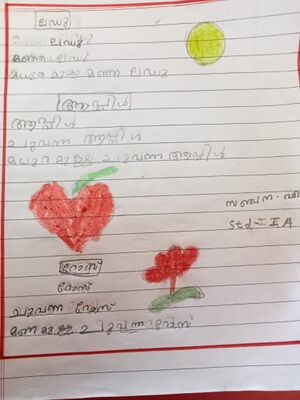 ലഡു
ലഡു
മഞ്ഞ ലഡു
മധുര മുള്ള മഞ്ഞ ലഡു
ആപ്പിൾ
ആപ്പിൾ
ചുവന്ന ആപ്പിൾ
മധുര മുള്ള ചുവന്ന ആപ്പിൾ
സഞ്ചന. എ
Std - II A
റോസ്
റോസ്
ചുവന്ന റോസ്
മണമുള്ള ചുവന്ന റോസ്